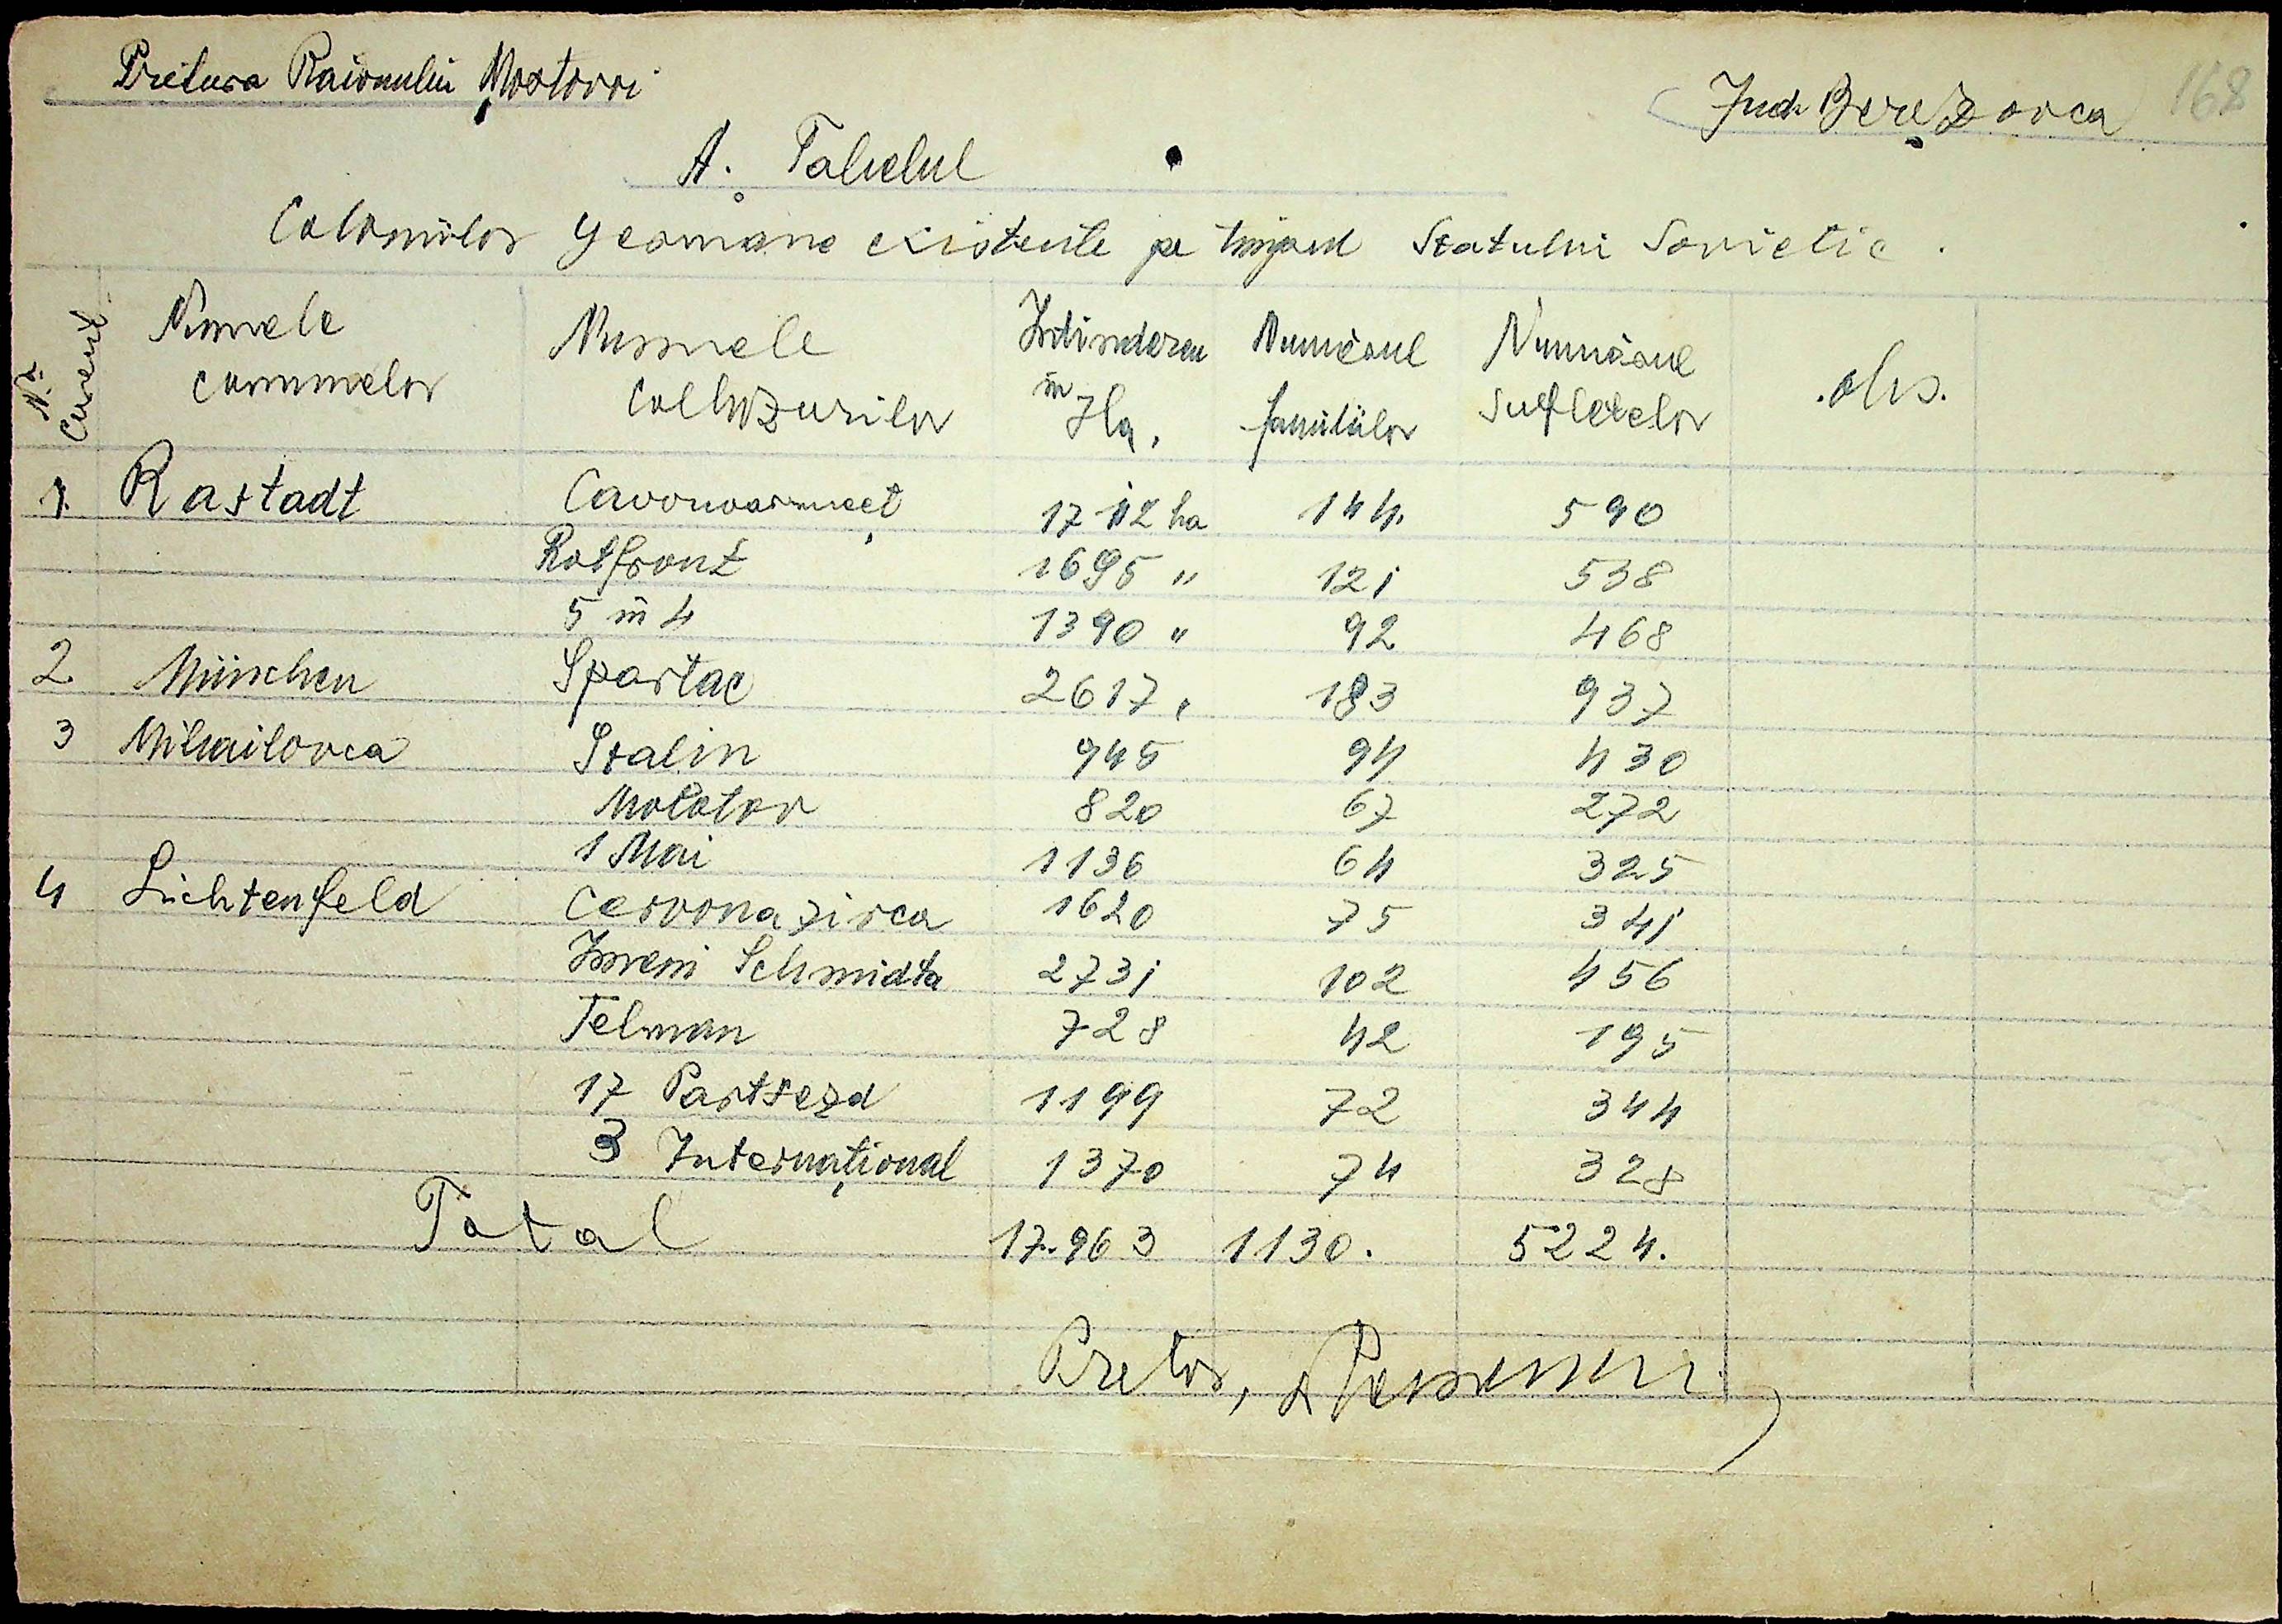 Pretura Raionului Mostovoi
Jud. Berezovca 168
A. Tabelul
Coloniilor germane existente pe timpul Statului Sovietic.
Nr. Curent. Numele comunelor Numele colhozurilor Intinderea in Ha. Numărul familiilor Numărul sufletelor obs.
1. Rastadt Cavonoarmeeț 1712 ha 144. 590
Rotfront 1695 " 121 538
5 in 4 1390 " 92 468
2 München Spartac 2617 " 183 937
3 Mihailovca Stalin 945 94 430
Molotov 820 67 272
1 Mai 1136 64 325
4 Lichtenfeld Cervona zirca 1620 75 341
Imeni Schmidta 2731 102 456
Telman 728 42 195
17 Partsezd 1199 72 344
3 Internațional 1370 74 328
Total 17.963 1130. 5224.
Pretor,